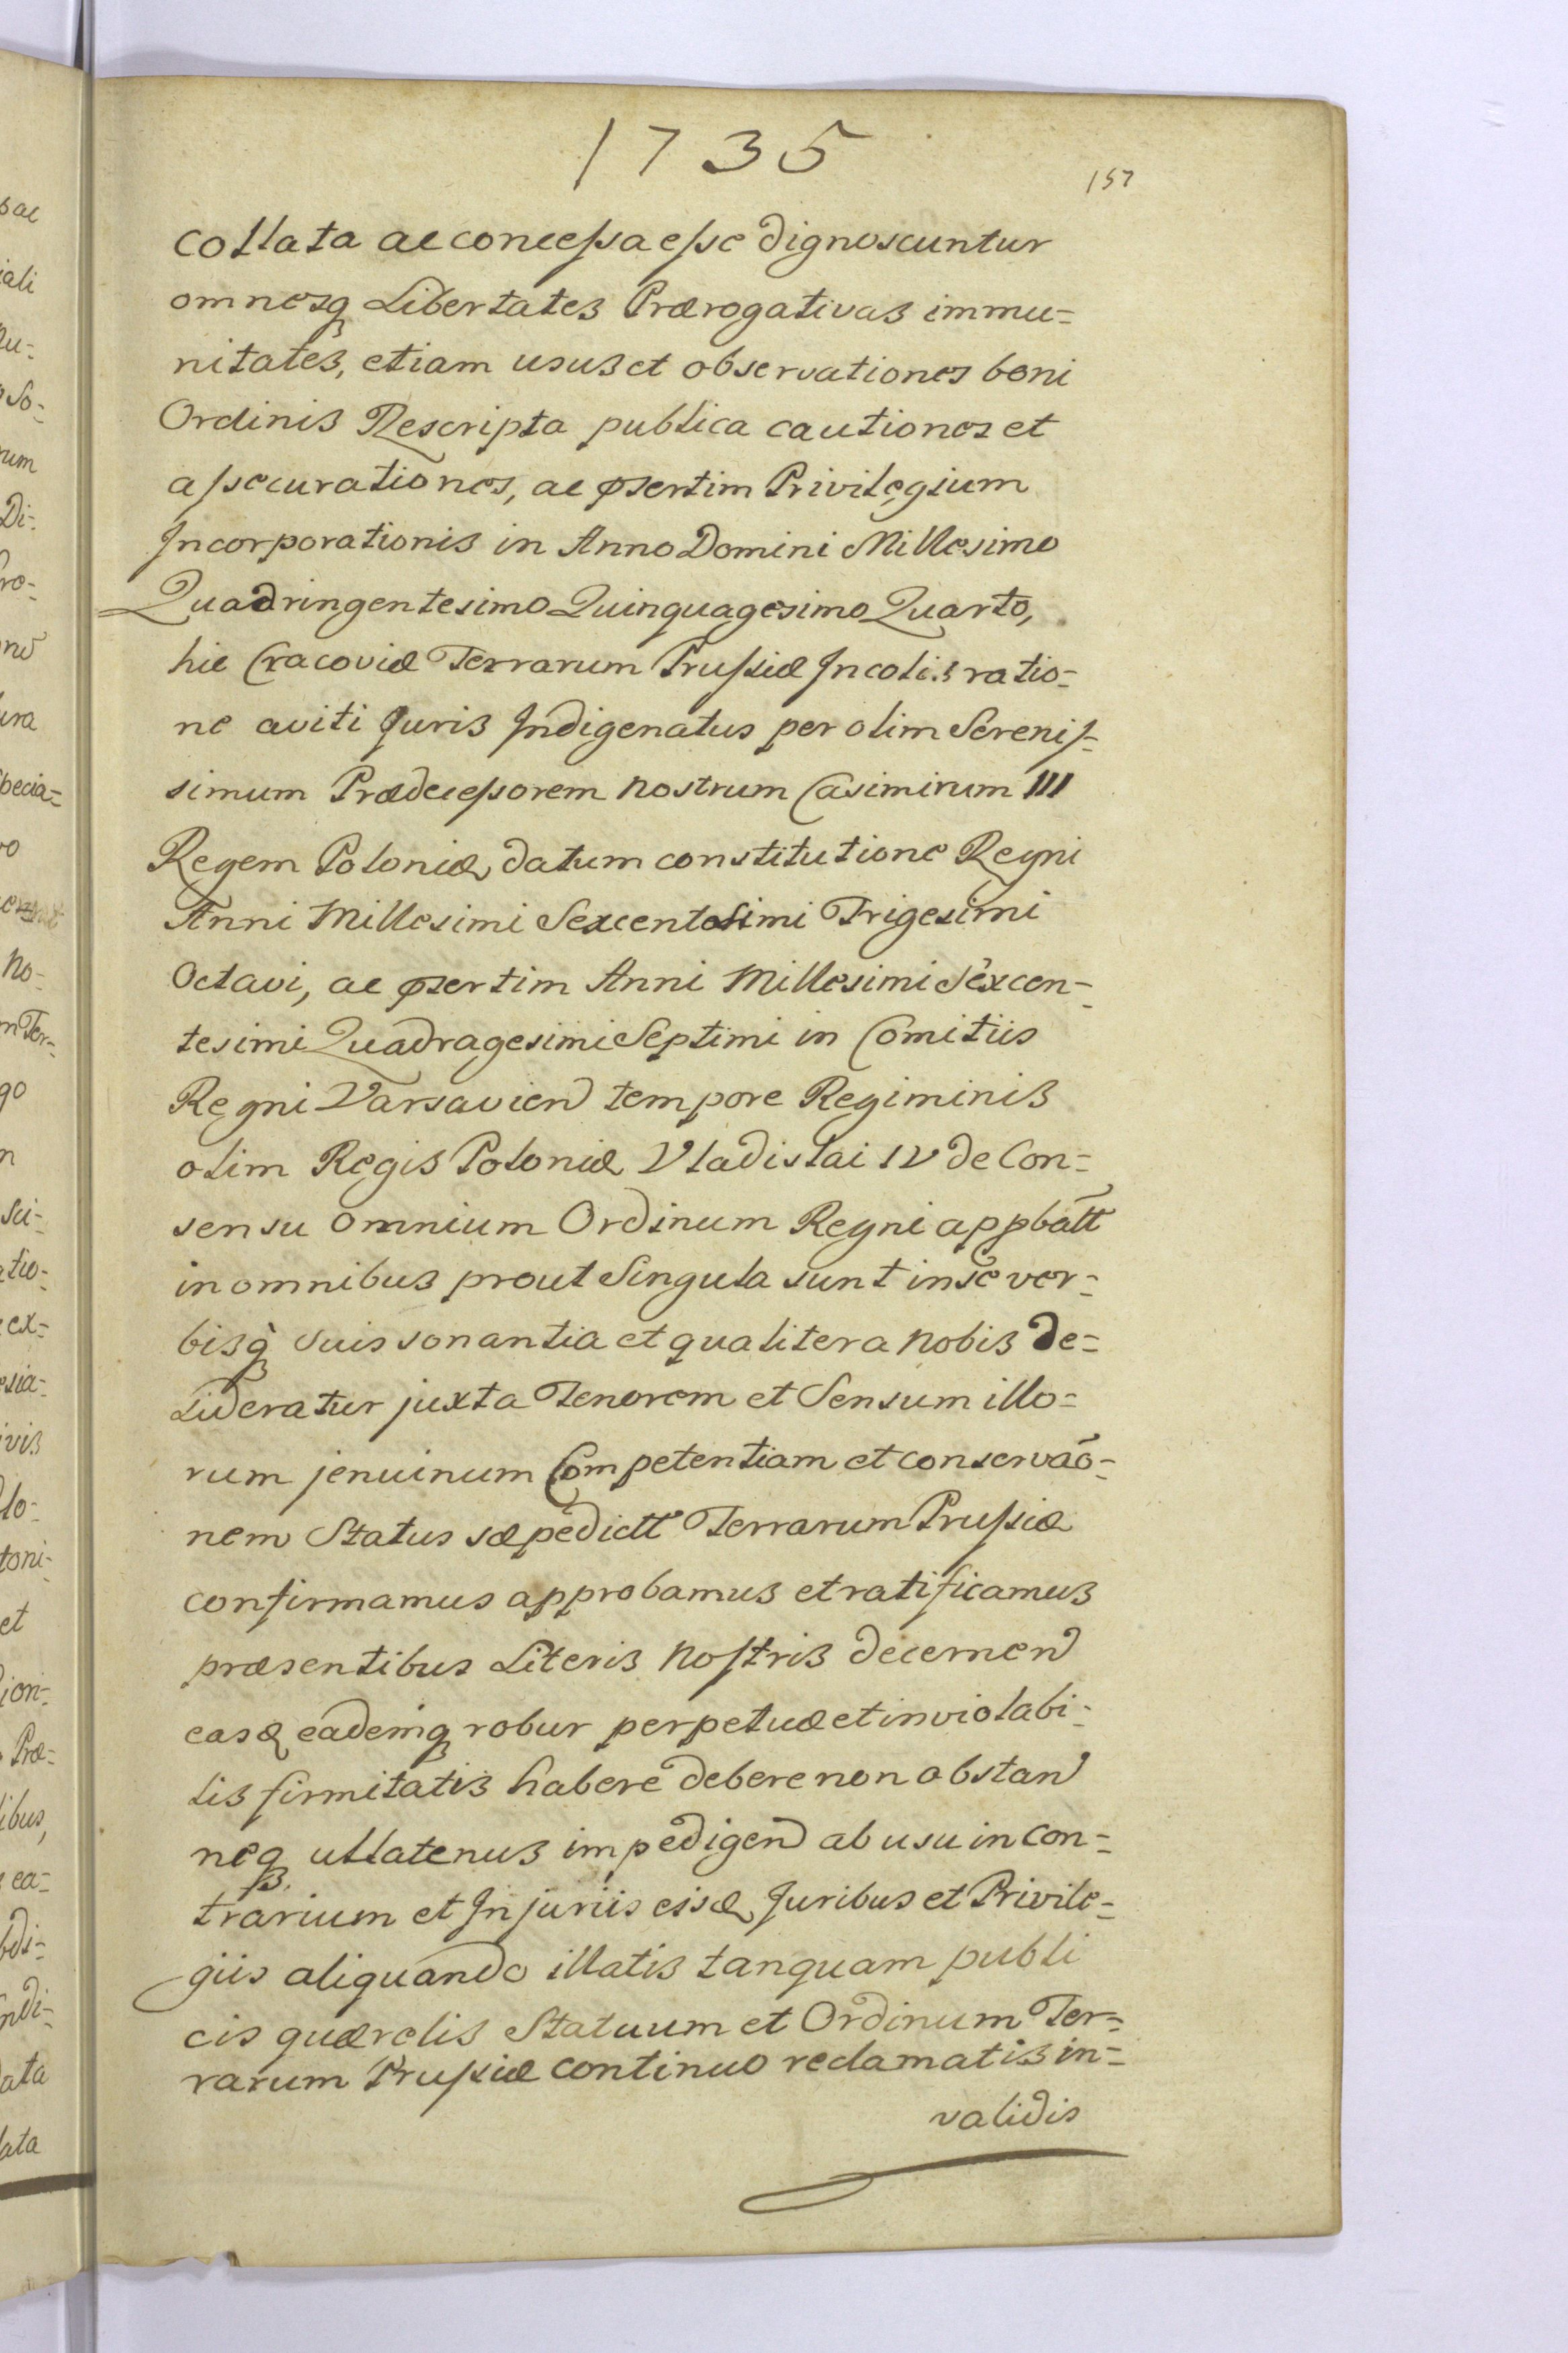 1735
157
collata ac concessa esse dignoscuntur
omnesq Libertates Prærogativas immu=
nitates, etiam usus et observationes boni
Ordinis Rescripta publica cautiones et
assecurationes, ac psertim Privilegium
Incorporationis in Anno Domini Millesimo
Quadringentesimo Quinquagesimo Quarto,
hic Cracoviæ Terrarum Prussiæ Incolis ratio=
ne aviti Juris Indigenatus per olim Serenis=
simum Prædecessorem nostrum Casimirum III
Regem Poloniæ, datum constitutione Regni
Anni Millesimi Sexcentesimi Trigesimi
Octavi, ac psertim Anni Millesimi Sexcen=
tesimi Quadragesimi Septimi in Comitiis
Regni Varsavien tempore Regiminis
olim Regis Poloniæ Vladislai IV de Con=
sensu omnium Ordinum Regni appbatt
in omnibus prout Singula sunt in se ver=
bisq suis sonantia et qualiter a nobis de=
sideratur juxta Tenorem et Sensum illo=
rum jenuinum Competentiam et conservaõ=
nem Status sæpedictt Terrarum Prussiæ
confirmamus approbamus et ratificamus
præsentibus Literis Nostris decernen
easq eademq robur perpetuæ et inviolabi=
lis firmitatis habere debere non obstan
neq ullatenus impedigen ab usu in con=
trarium et Injuriis eisd Juribus et Privile=
giis aliquando illatis tanquam publi
cis quærelis Statuum et Ordinum Ter=
rarum Prussiæ continuo reclamatis in=
validis